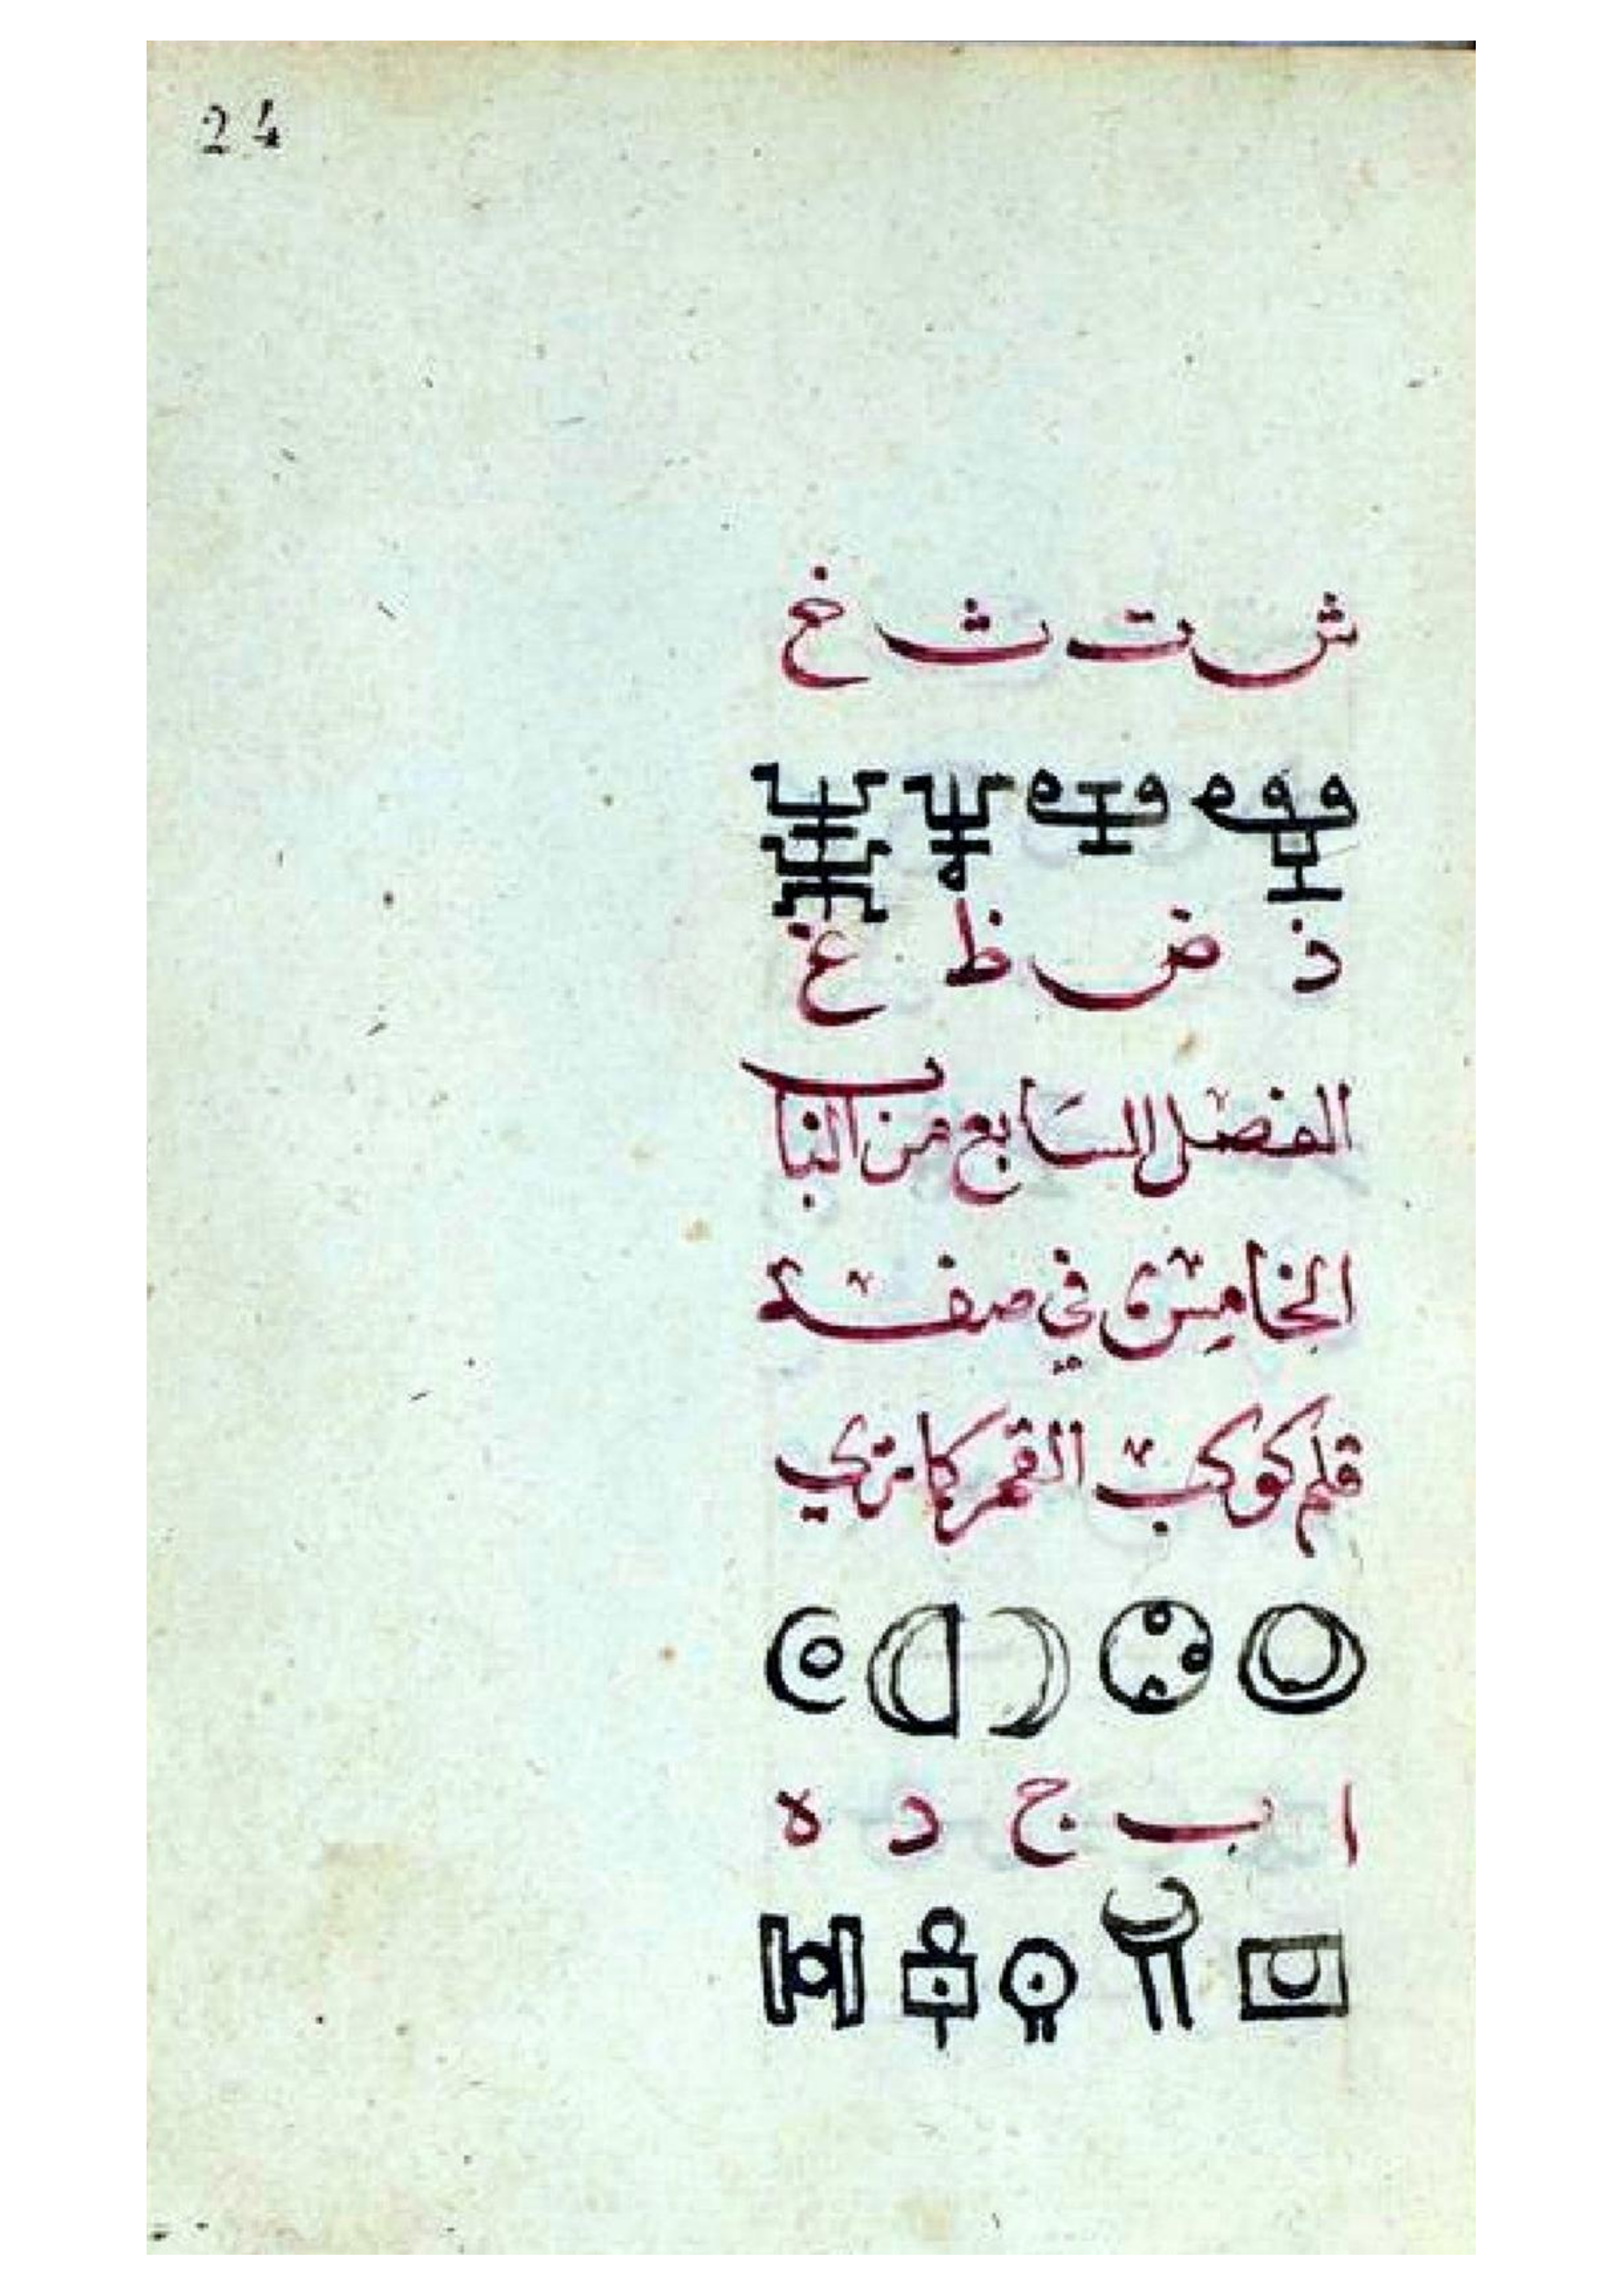 24
ش ت ث خ
ذ ض ظ غ
الفصل السابع من الباب
الخامس في صفة
قلم كوكب القمر كما تري
ا ب ج د ه